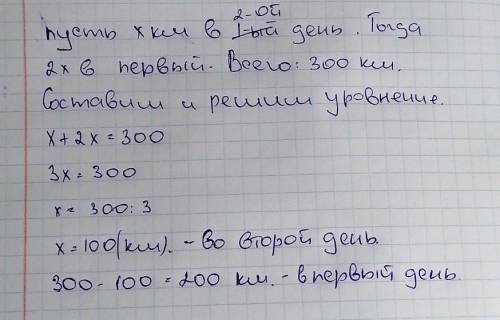 пусть x км в 2-ой 1-ый день. Тогда
2x в первый. Всего: 300 км.
Составим и решим уровнение.
x + 2x = 300
3x = 300
x = 300 : 3
x = 100 (км). - во второй день.
300 - 100 = 200 км. - в первый день.